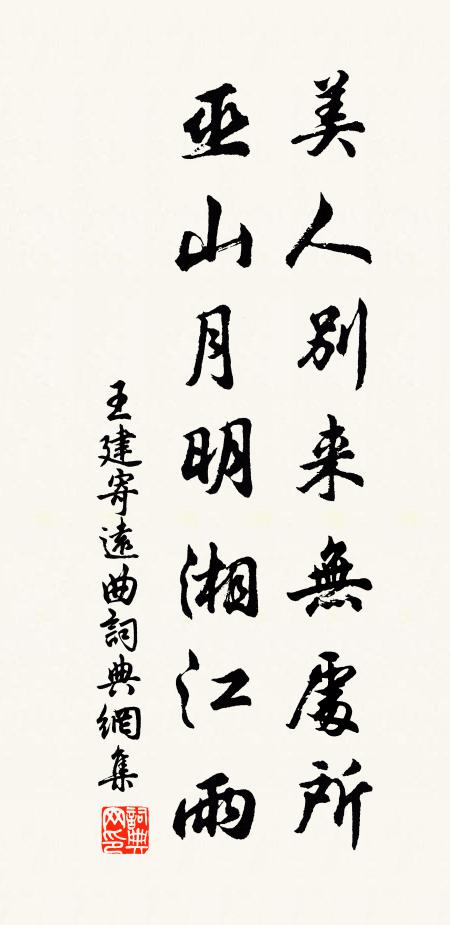 美人别来無處所
巫山月明湘江雨
王建寄遠曲詞典網集
詞典
网印